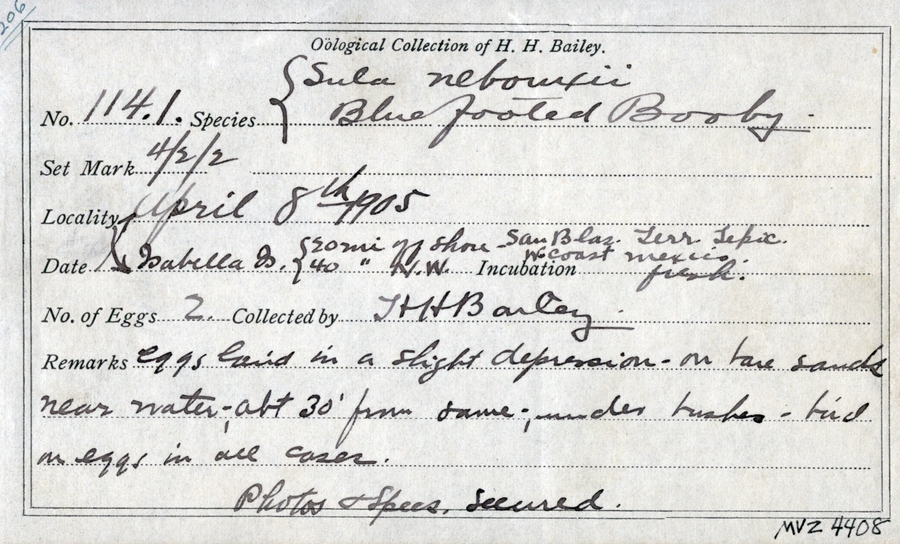 206
Oölogical Collection of H. H. Bailey.
Sula nebouxii
No. 114.1. Species Blue footed Booby.
Set Mark 4/2/2
Locality April 8th 1905
20 mi off shore San Blas. Terr. Tepic.
W coast Mexico.
Date Isabella Is. 40 " N.W. Incubation fresh.
No. of Eggs 2. Collected by H H Bailey
Remarks eggs laid in a slight depression - on bare sands
near water, - abt 30' from same -; under bushes - bird
on eggs in all cases.
Photos & Specs. secured.
MVZ 4408